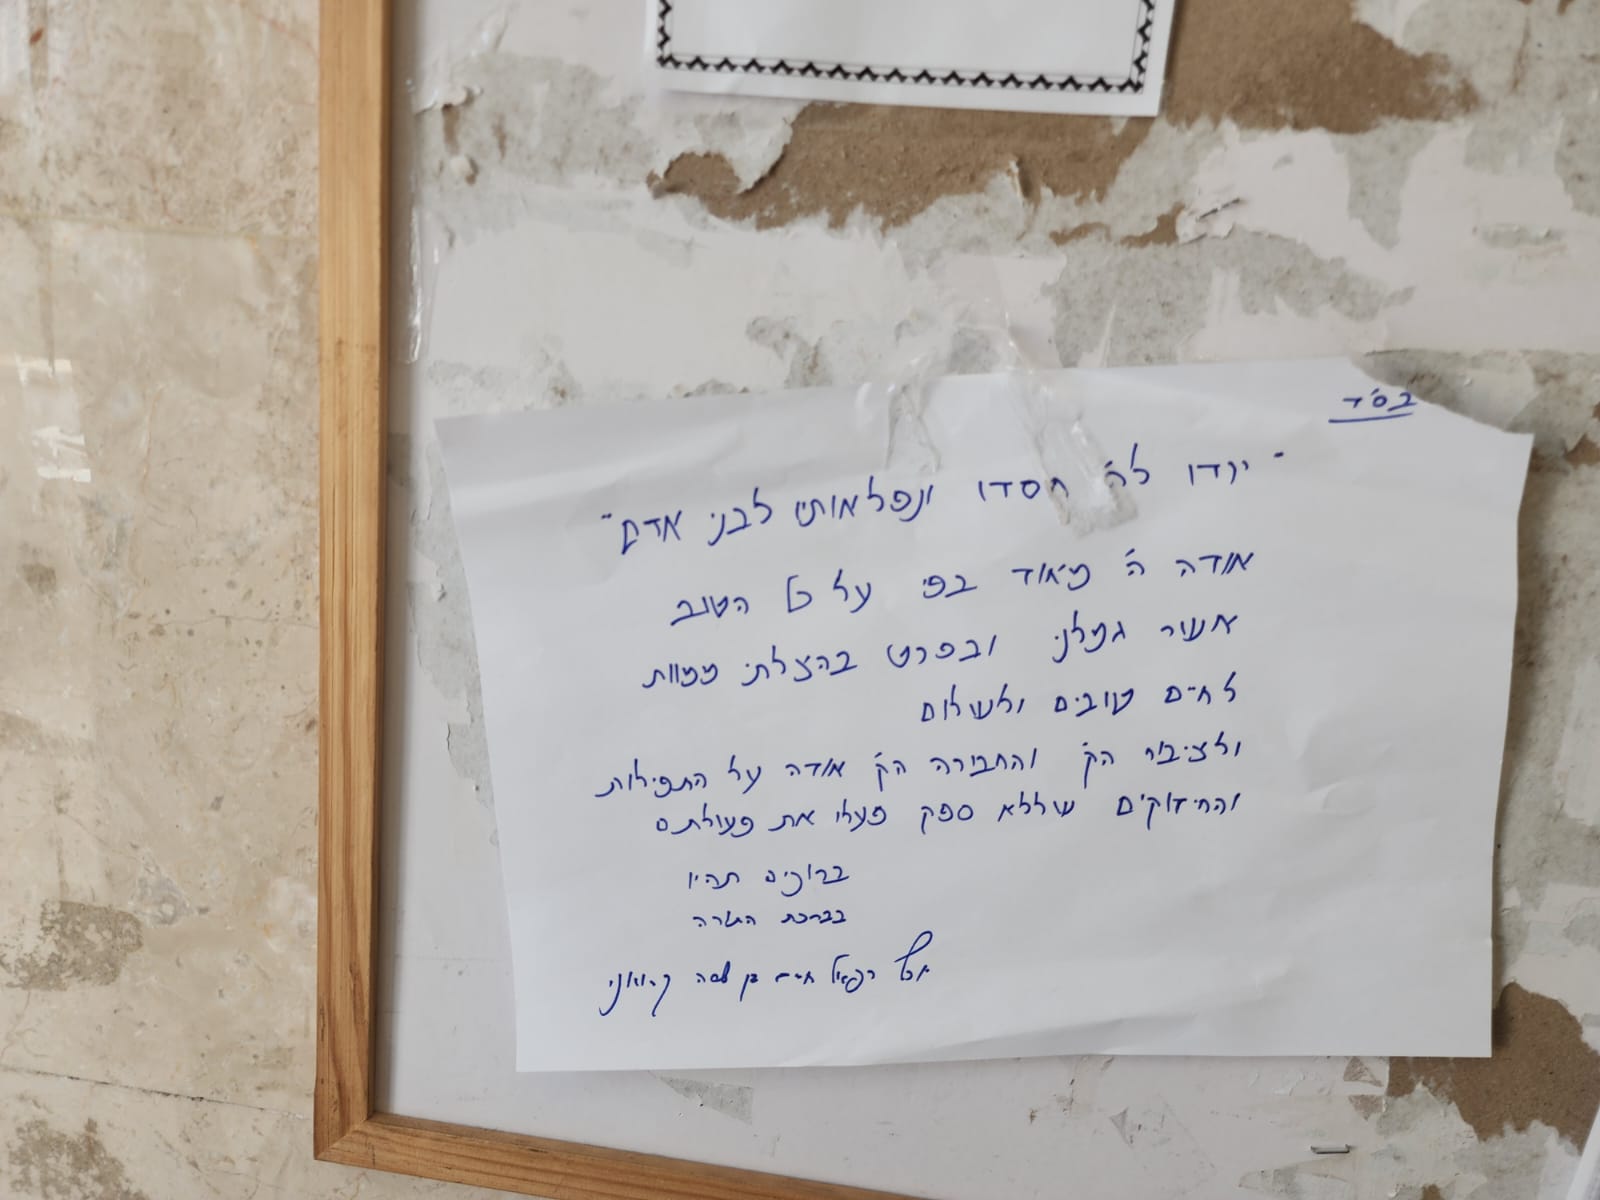 בס"ד
"יודו לה' חסדו ונפלאותיו לבני אדם"
אודה ה' מאוד בפי על כל הטוב
אשר גמלני ובפרט בהצלתי ממוות
לחיים טובים ולשלום
ולציבור הק' והחבורה הק' אודה על התפילות
והחיזוקים שללא ספק פעלו את פעולתם
ברוכים תהיו
בברכת התורה
רפאל חיים בן